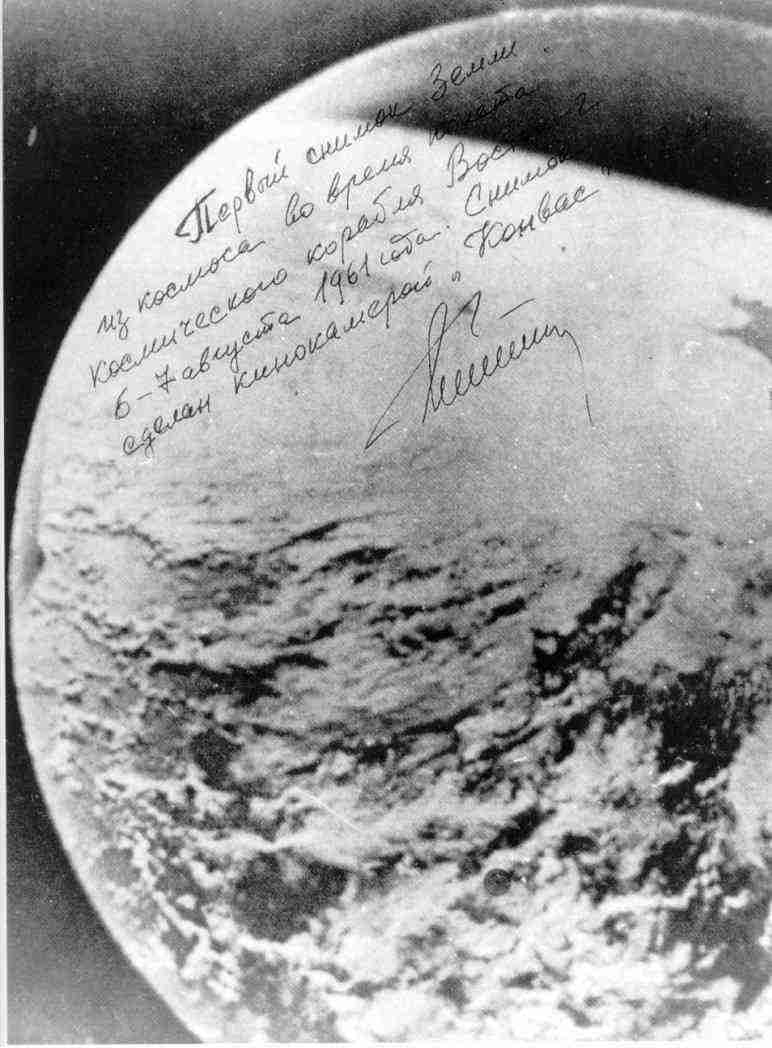 Первый снимок Земли
из космоса во время полета
космического корабля Восток-2
6-7 августа 1961 года. Снимок
сделан кинокамерой „Конвас